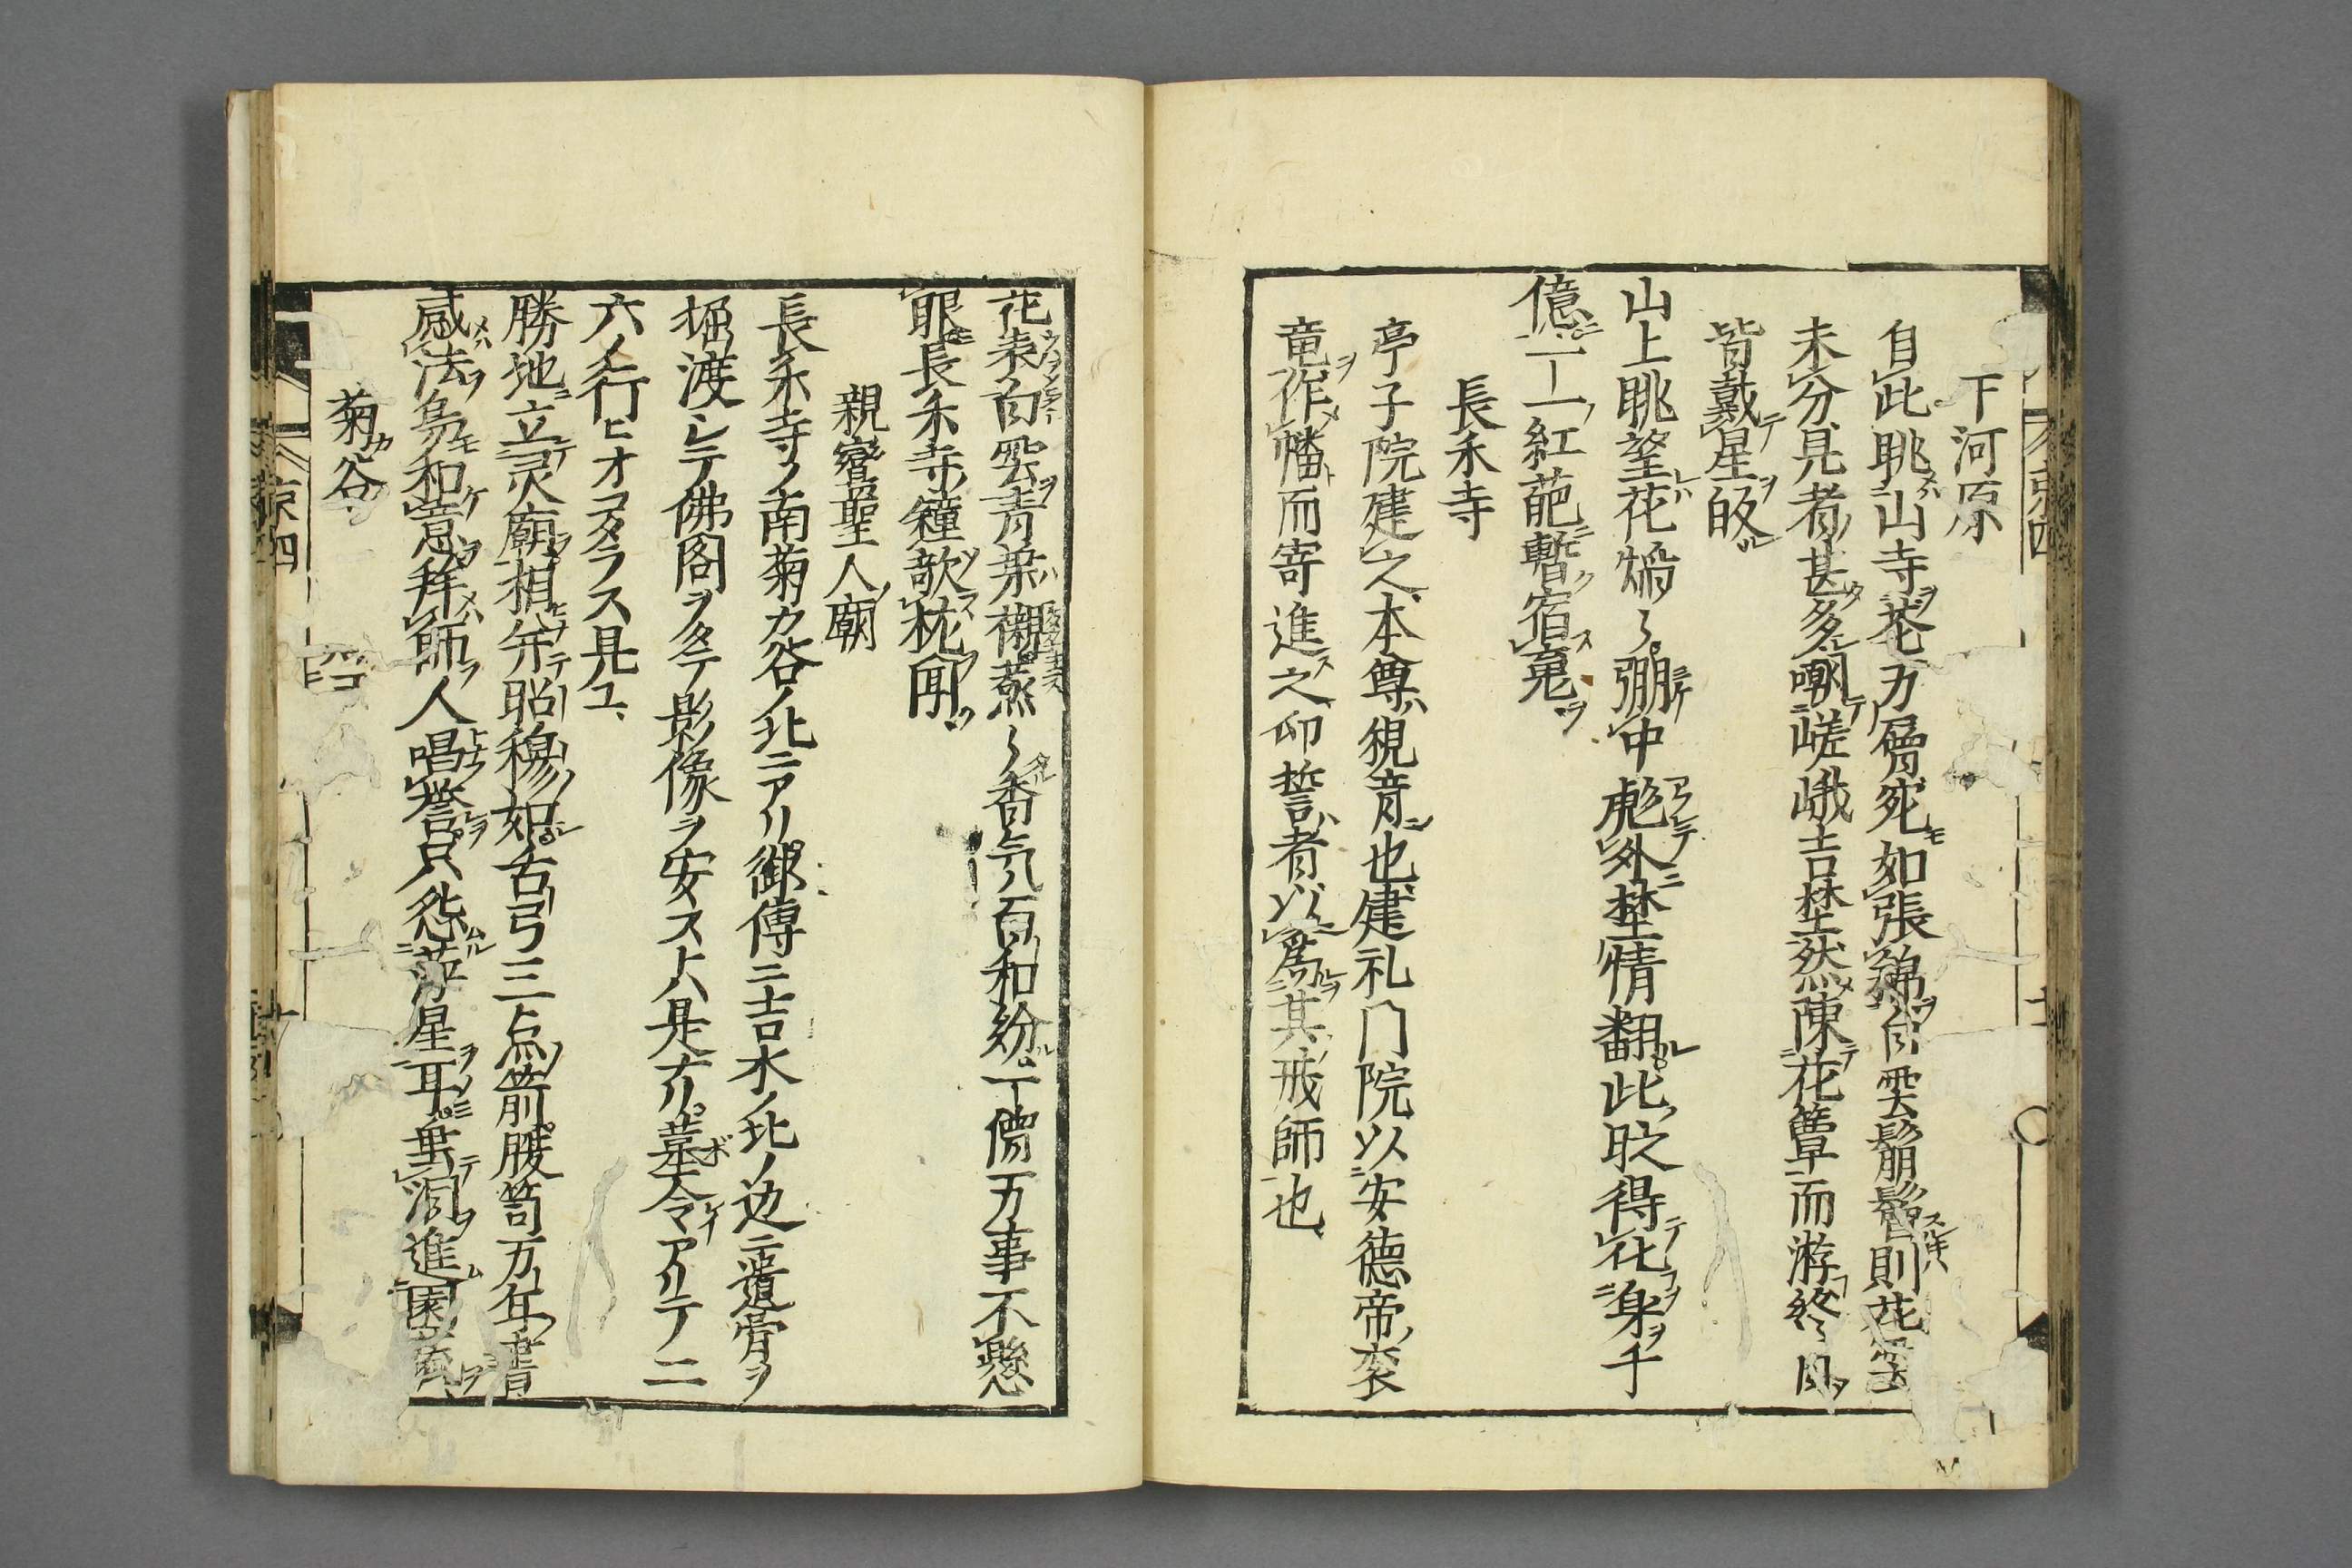 下河原
自此眺山寺花万層死如張錦自雲鬅鬙則花雲
未分見者甚多嘲嵯峨吉埜然陳花簟而游終日
皆戴星皈
山上眺望花焔〻弸中彪外埜情翻此段得花身千
億丁一紅葩暫宿寃
長禾寺
亭子院建之本尊観音也建礼門院以安徳帝ノ衮
竜作幡而寄進之印誓者以為其戒師也
花表白雲青葉襯蒸〻香氣百和紛丁僧万事不懸
眼長禾寺鐘欹枕聞
親鸞聖人廟
長禾寺ノ南菊カ谷ノ北ニアリ御傳ニ吉水ノ北ノ辺ニ遺骨ヲ
堀渡シテ佛閣ヲタテ影像ヲ安ストハ是ナリ墓令アリテ二
六ノ行ヒオコタラス見ユ
勝地立灵廟相並昭穆如右弓三点箭腰笥万年書
感法鳥和意拜師人唱誉只怨萍星耳垂洞進園
菊谷